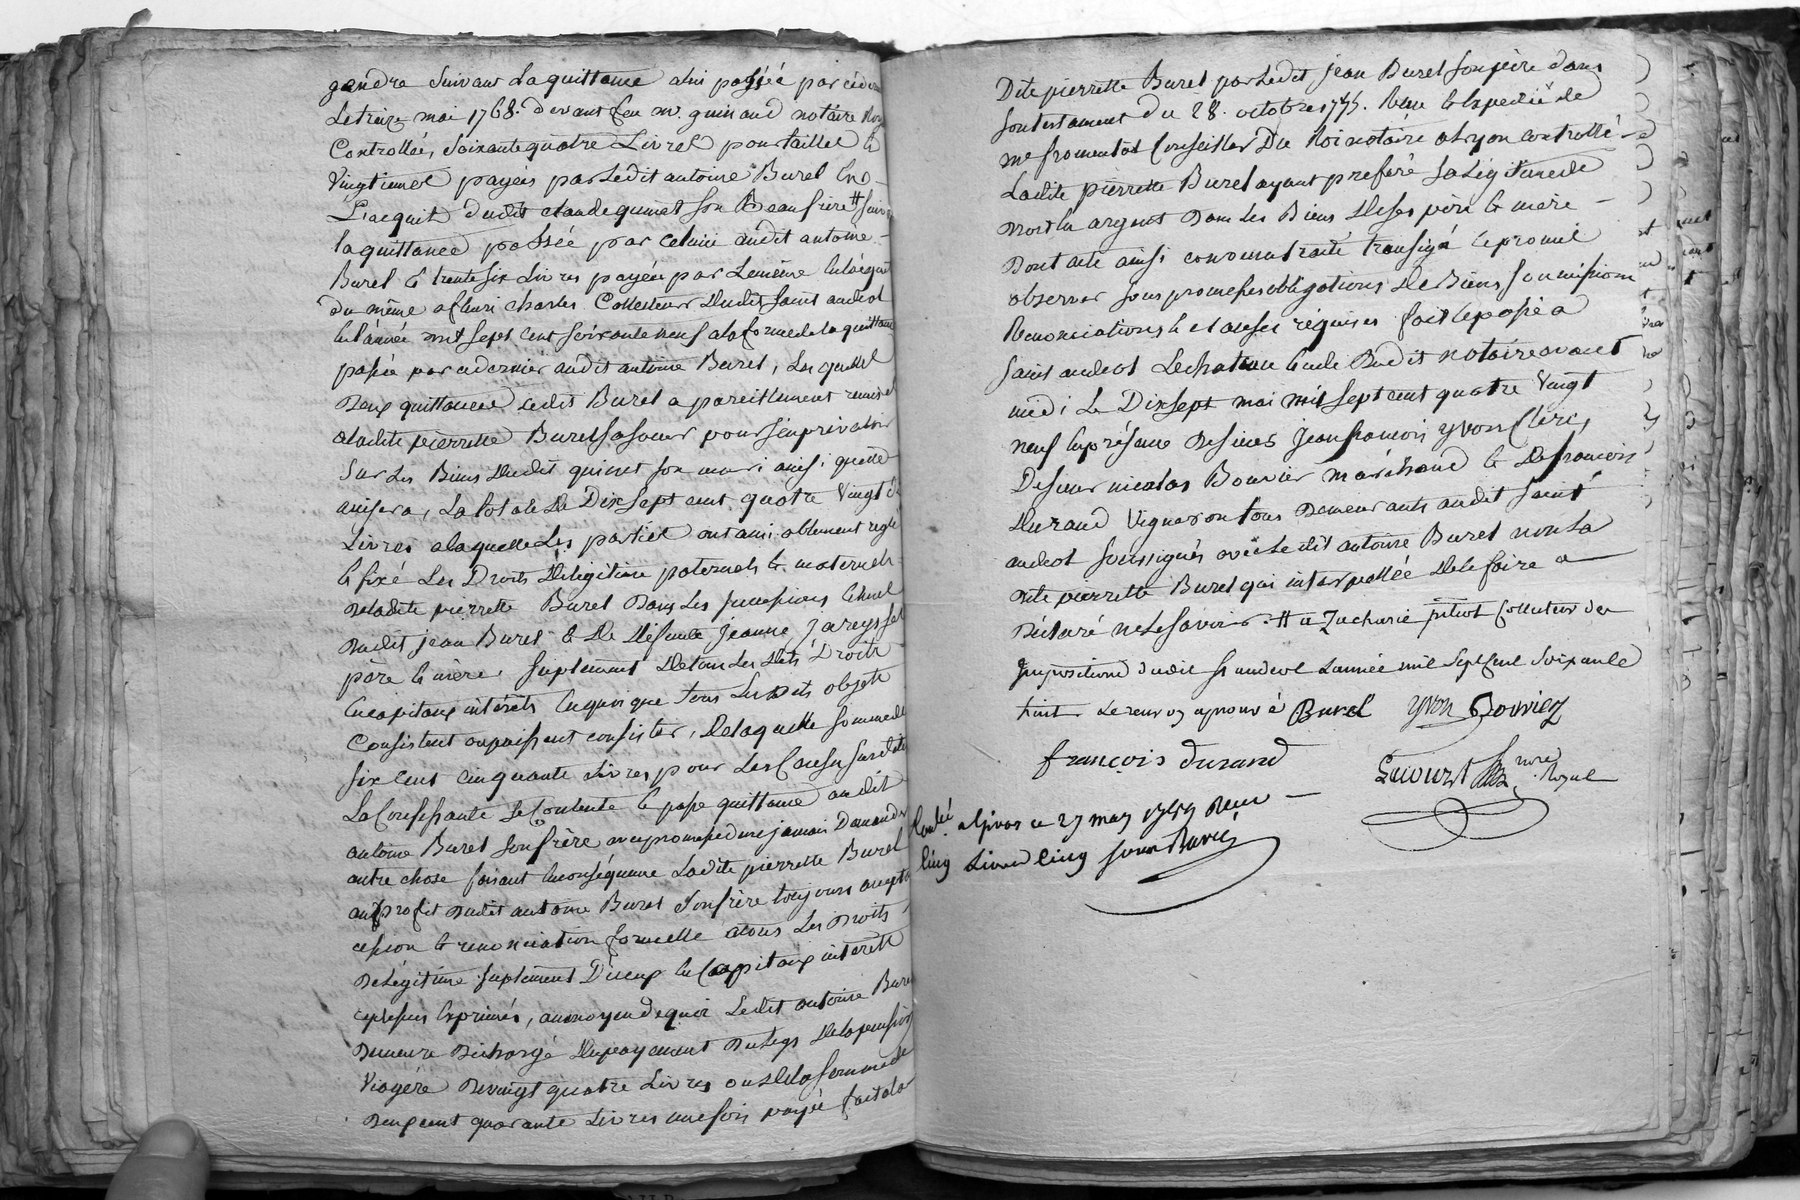 gendre suivant la quittance a lui passée par ce der
le treize mai 1768. devant feu me. guinand notaire Roy
Controllée, soixante quatre Livres pour tailles &
vingtiemes payés par ledit antoine Burel en
L'acquit dudit claude quinet son Beaufrère # suiv
la quittance passée par celuici audit antoine
Burel & trente six Livres payée par le même en l'acquit
du même a fleuri charles Collecteur dudit saint andeol
en l'année mil sept cent soixante neuf a la forme de la quittance
passée par ce dernier audit antoine Burel, Les quelles
Deux quittances ledit Burel a pareillement remises
a ladite pierrette Burel sa soeur pour s'en prevaloir
Sur Les Biens dudit quinet son mari ainsi quelle
avisera, La totale De Dix sept cent quatre vingt
Livres a laquelle Les parties ont amiablement reglé
& fixé Les Droits De legitime paternels & maternels
De ladite pierrette Burel Dans Les successions
Dudit jean Burel & De Deffunte jeanne jareysset
père & mère, suplement De tous Les dits Droits
en capitaux intérêts en quoi que tous Lesdits objets
Consistent ou puissent consister, De laquelle somme de
six cens cinquante Livres pour Les Causes susdites
La Confessante se Contente & passe quittance audit
antoine Burel son frère avec promesse de ne jamais Demander
autre chose faisant en conséquence Ladite pierrette Burel
au profit dudit antoine Burel son frère toujours acceptant
cession & renonciation formelle a tous Les Droits
De Légitime suplement D'iceux en Capitaux intérêts
cydessus Exprimés, au moyen de quoi Ledit antoine Burel
Demeure Déchargé Du payement Du Legs De la pension
viagère De vingt quatre Livres ou De la somme de
Deux cent quarante Livres une fois payée fait a la
Dite pierrette Burel par Ledit jean Burel son père dans
son testament du 28. octobre 1775. Reçu & Expedié de
me fromental Conseiller Du Roi notaire a Lyon controllé
Ladite pierrette Burel ayant preferé sa Légitime de
Droit en argent Dans Les Biens De ses père & mère
Dont acte ainsi convenu traité transigé & promis
observer sous promesses obligations De Biens soumissions
Renonciations & clauses réquises fait & passé a
saint andeol Lechateau Etude Dudit notaire avant
midi Le Dix sept mai mil sept cent quatre vingt
neuf En présence De sieurs jean francois yvon Clerc,
De sieur nicolas Bouvier marchand & De françois
Durand vigneron tous Demeurants audit saint
andeol soussignés avec Le dit antoine Burel non La
Dite pierrette Burel qui interpellée De le faire a
Déclaré ne le savoir. # a Zacharie pitiot Collecteur des
Impositions dudit st andeol L'année mil sept cent soixante
huit Le renvoy aprouvé Burel yvon Bouvier
françois durand
nore
Royal
Conlé a Givors ce 27 may 1789 Reçu
Cinq Livres Cinq sous